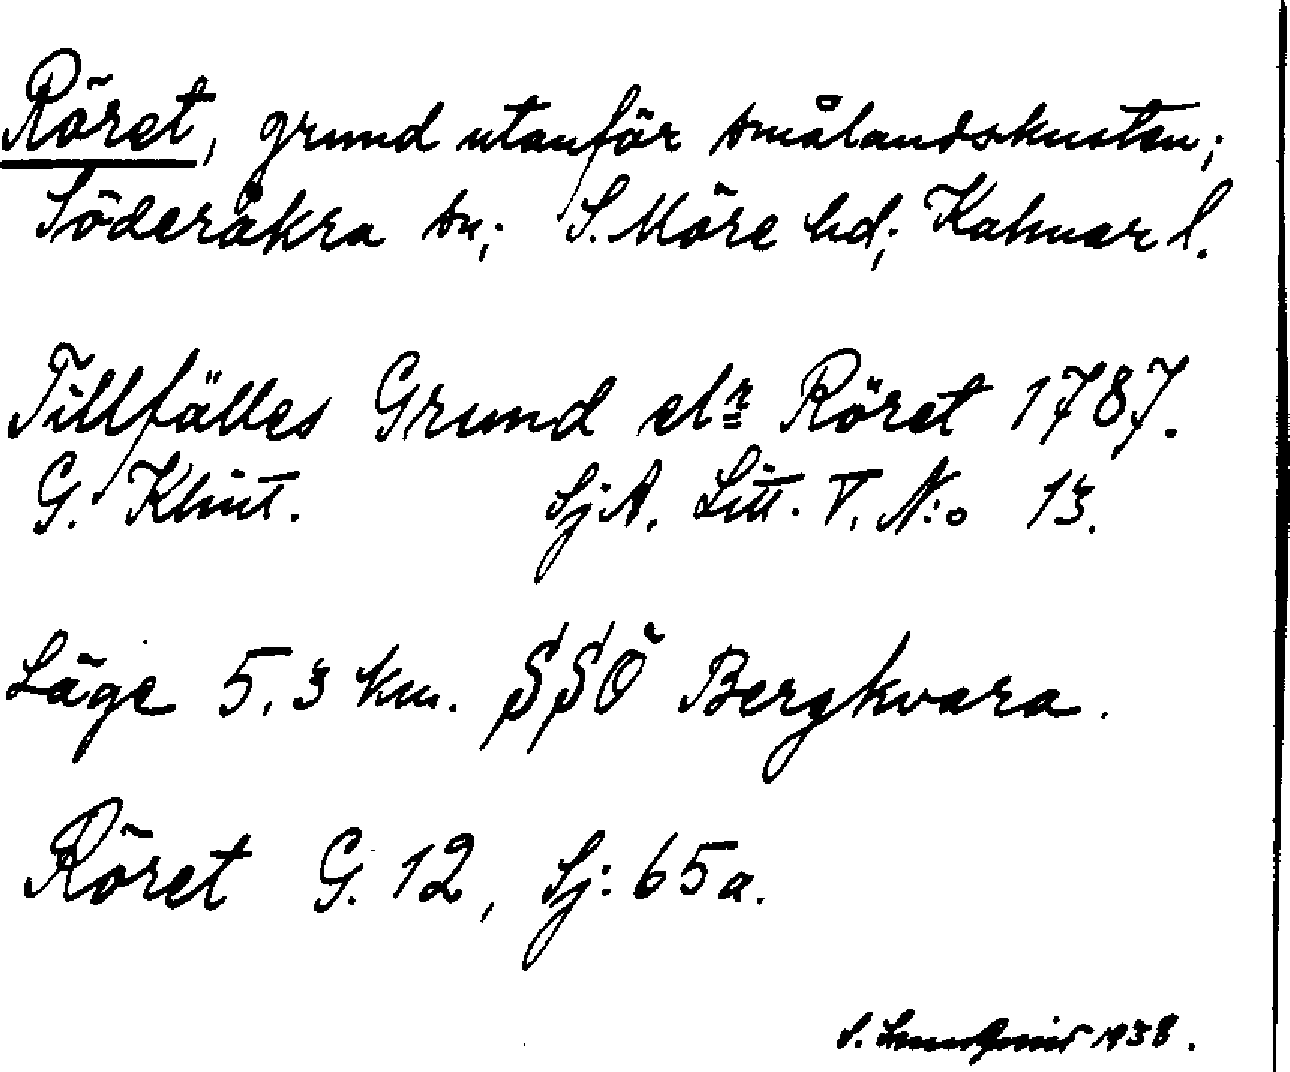 Röret, grund utanför Smålandskusten;
Söderåkra sn; S. Möre hd; Kalmar l.
Tillfälles Grund elr Röret 1787.
G. Klint. SjA. Litt. T. N:o 13.
Läge 5,3 km. SSÖ Bergkvara.
Röret G. 12, Sj: 65a.
S. 1938.